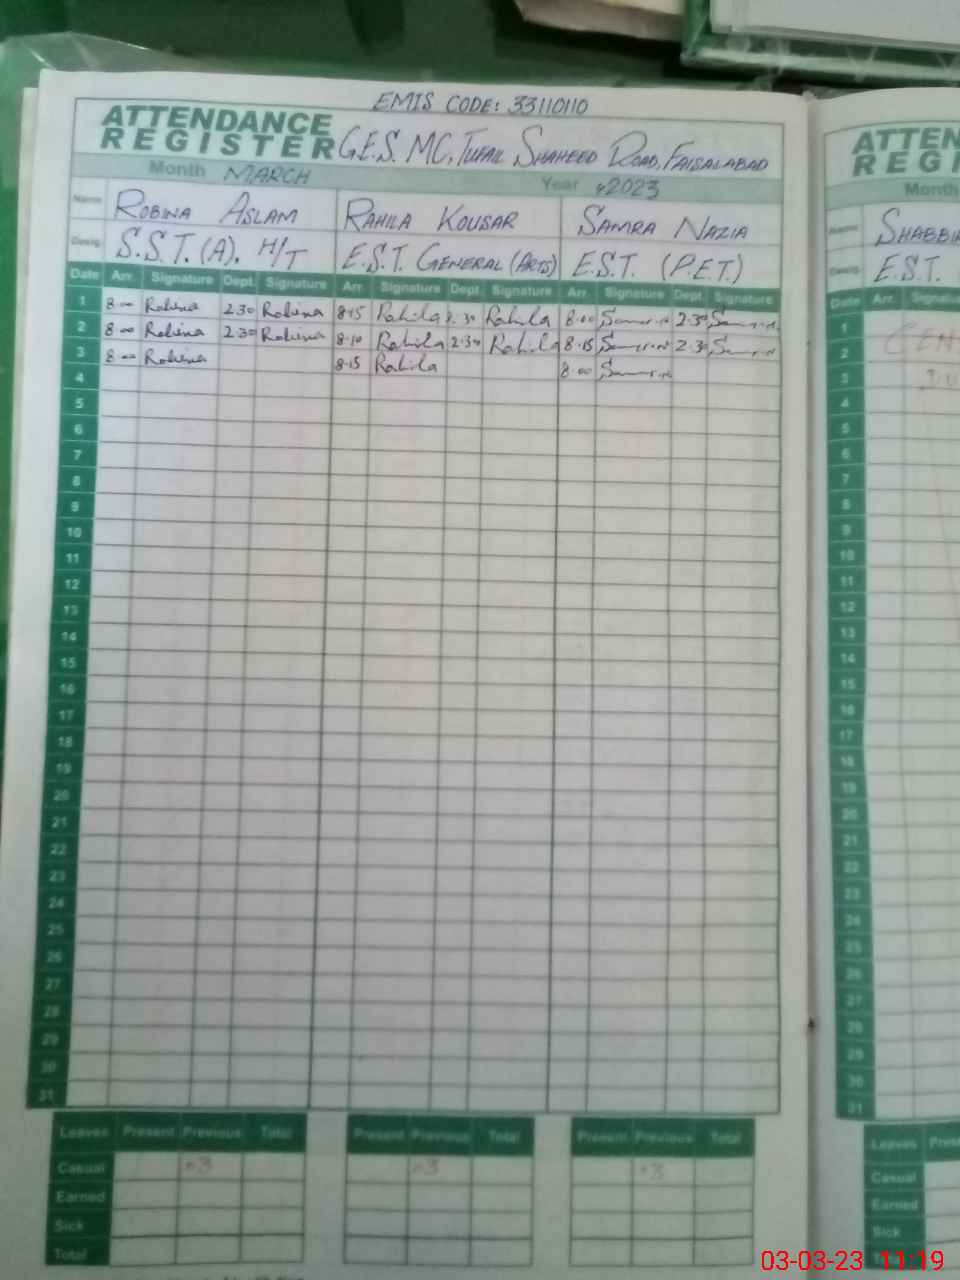 EMIS CODE: 33110110
ATTENDANCE REGISTER G.E.S. MC, TUFAIL SHAHEED ROAD, FAISALABAD
Month MARCH Year 2023
Name ROBINA ASLAM RAHILA KOUSAR SAMRA NAZIA
Desig. S.S.T.(A). H/T E.S.T. GENERAL (ARTS) E.S.T. (P.E.T.)
Date Arr. Signature Dept. Signature Arr. Signature Dept. Signature Arr. Signature Dept. Signature
1 8-00 Robina 2.30 Robina 8-15 Rahila 2.30 Rahila 8-00 2.30
2 8-00 Robina 2.30 Robina 8-10 Rahila 2.30 Rahila 8-15 2.30
3 8-00 Robina 8-15 Rahila 8-00
4
5
6
7
8
9
10
11
12
13
14
15
16
17
18
19
20
21
22
23
24
25
26
27
28
29
30
31
Leaves Present Previous Total Present Previous Total Present Previous Total
Casual 3 3 3
Earned
Sick
Total
ATTEN
REGI
Month
Name SHABBI
Desig. E.S.T.
Date Arr. Signatu
1
2
3
4
5
6
7
8
9
10
11
12
13
14
15
16
17
18
19
20
21
22
23
24
25
26
27
28
29
30
31
Leaves Pres
Casual
Earned
Sick
03-03-23 11:19